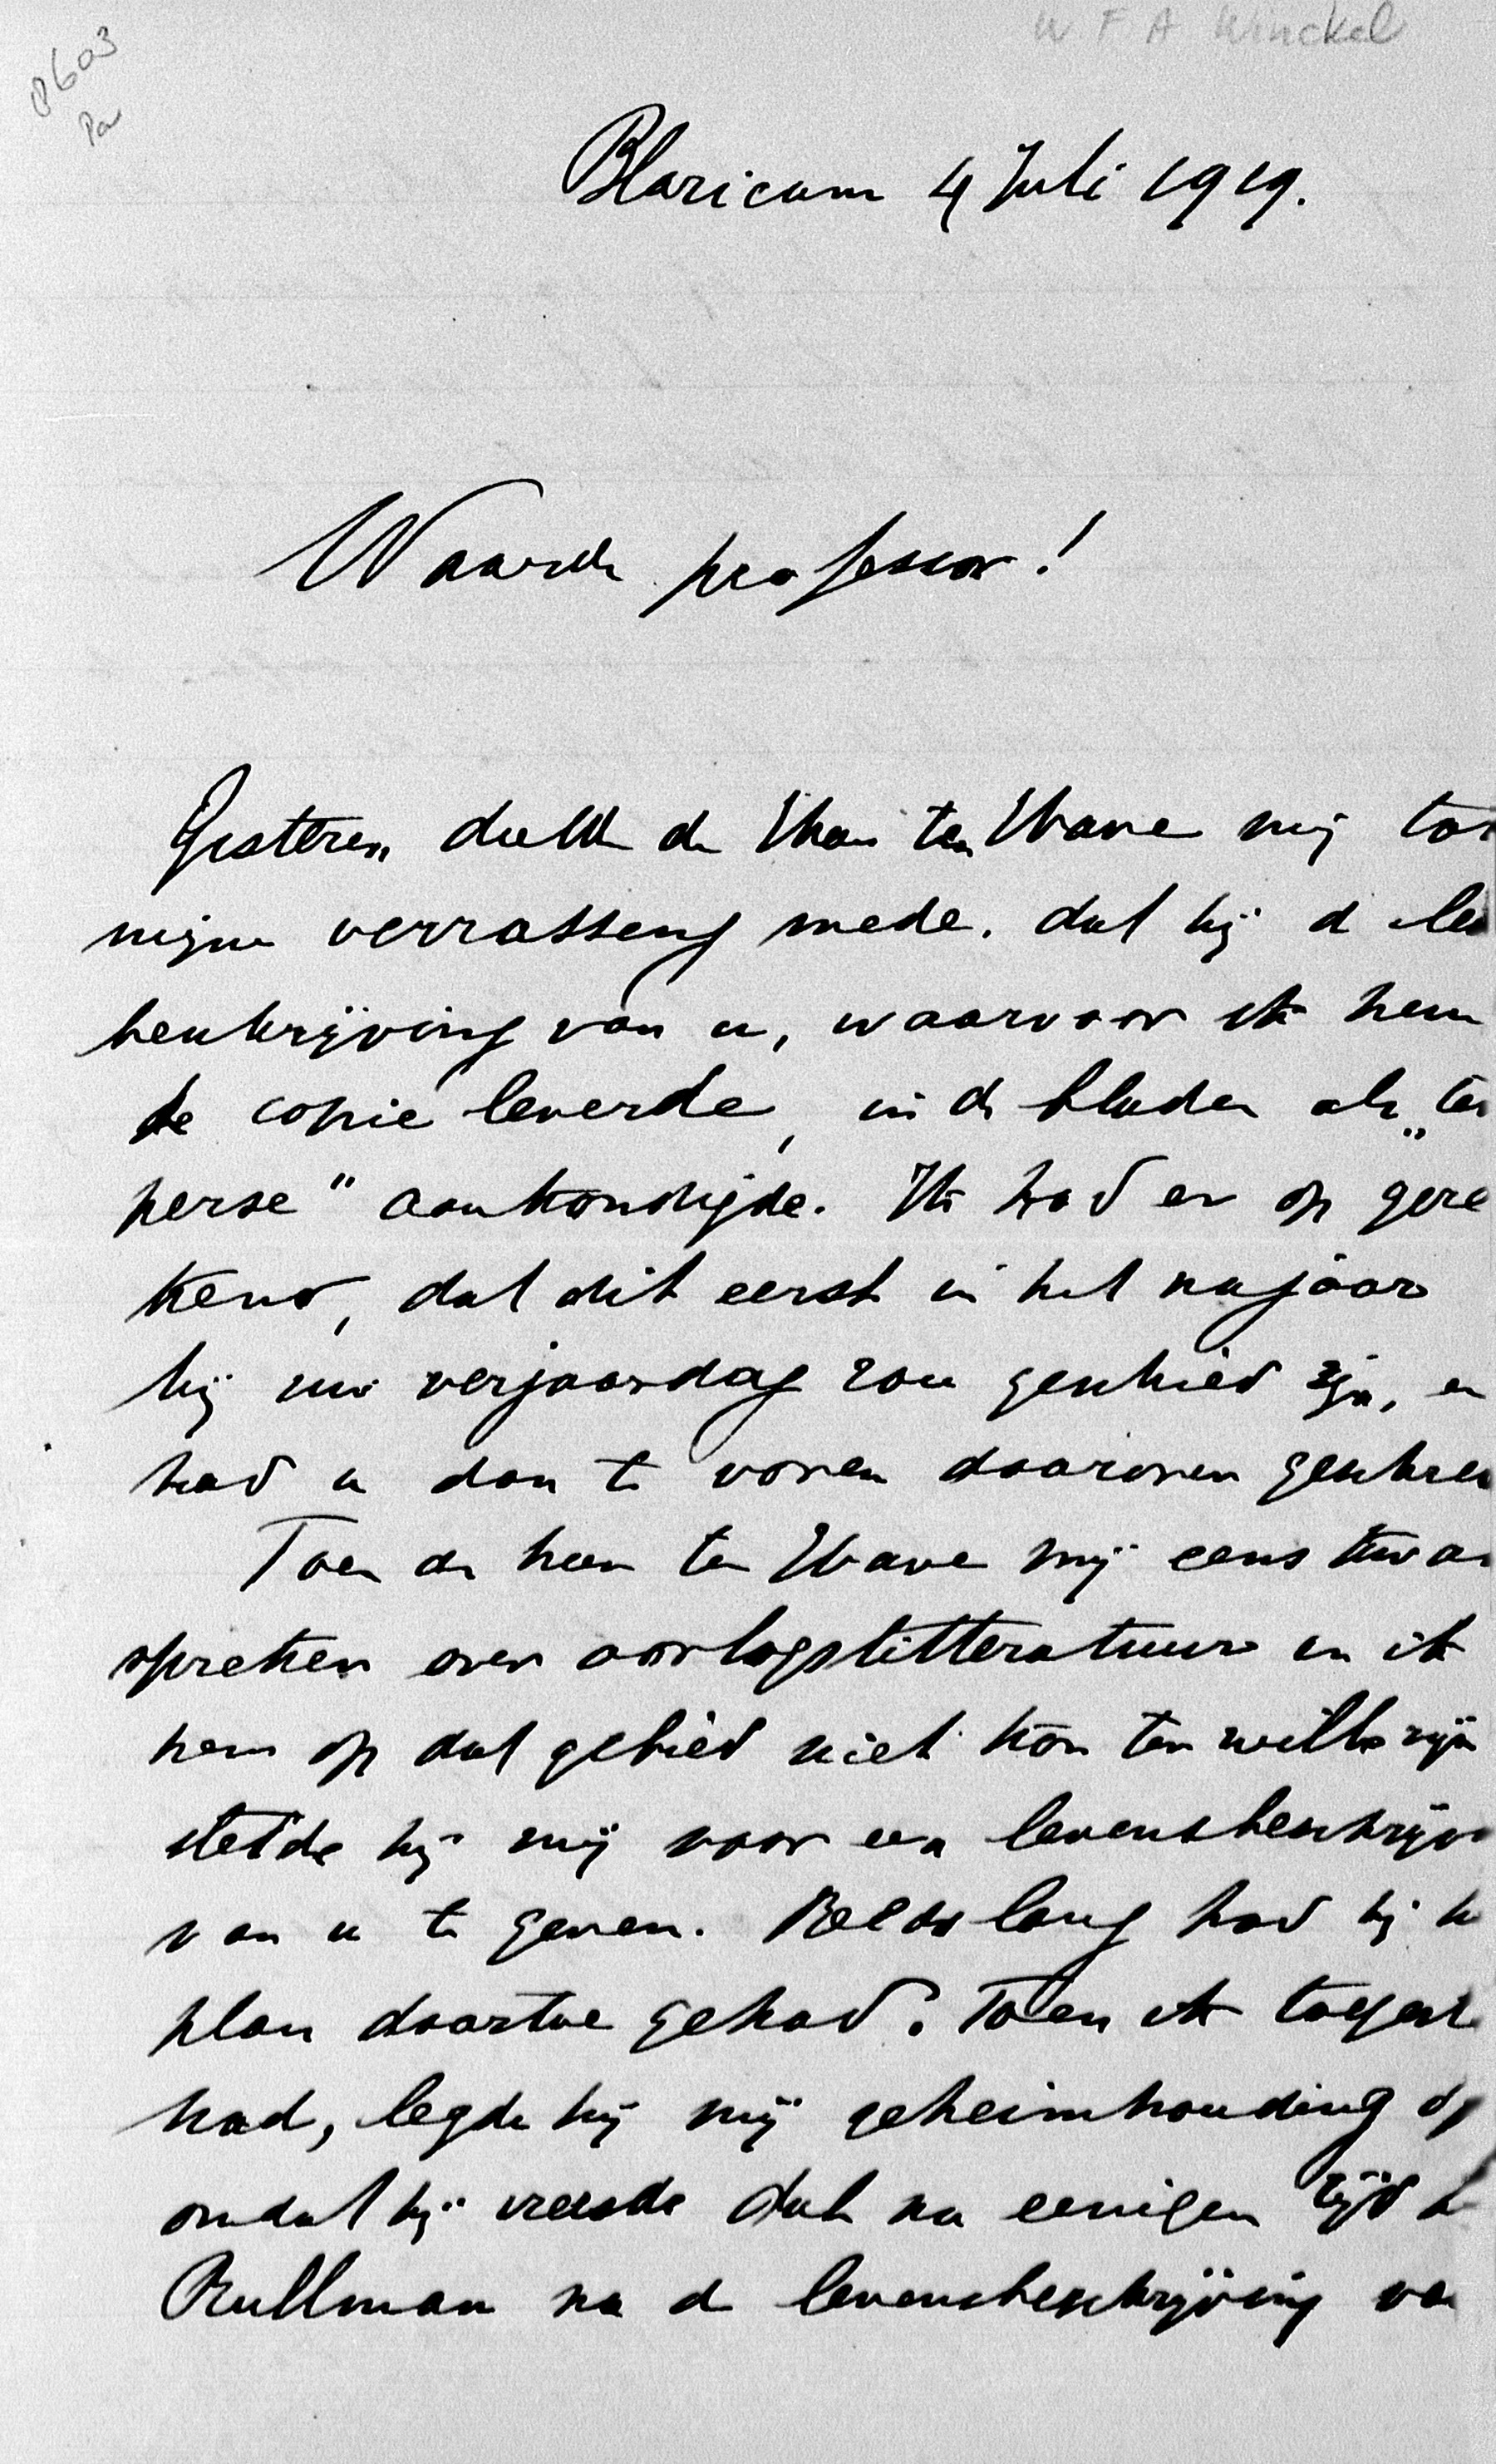 W F A Winckel
8603
Pa
Blaricum 4 Juli 1919.
Waarde professor!
Gisteren deelde de Heer ten Have mij tot
mijne verrassing mede, dat hij de le
benschrijving van u, waarvoor ik hem
de copie leverde, in de bladen als „ter
perse" aankondigde. Ik had er op gere
kend, dat dit eerst in het najaar
bij uw verjaardag zou geschied zijn, en
had u dan te voren daarover geschrev
Toen de heer ten Have mij eens kwam
spreken over oorlogslitteratuur en ik
hem op dat gebied niet kon ter wille zijn
stelde hij mij voor een levensbeschrijv
van u te geven. Reeds lang had hij h
plan daartoe gehad. Toen ik toegest
had, legde hij mij geheimhouding op
omdat hij vreesde dat na eenigen tijd
Rullman na de levensbeschrijving va